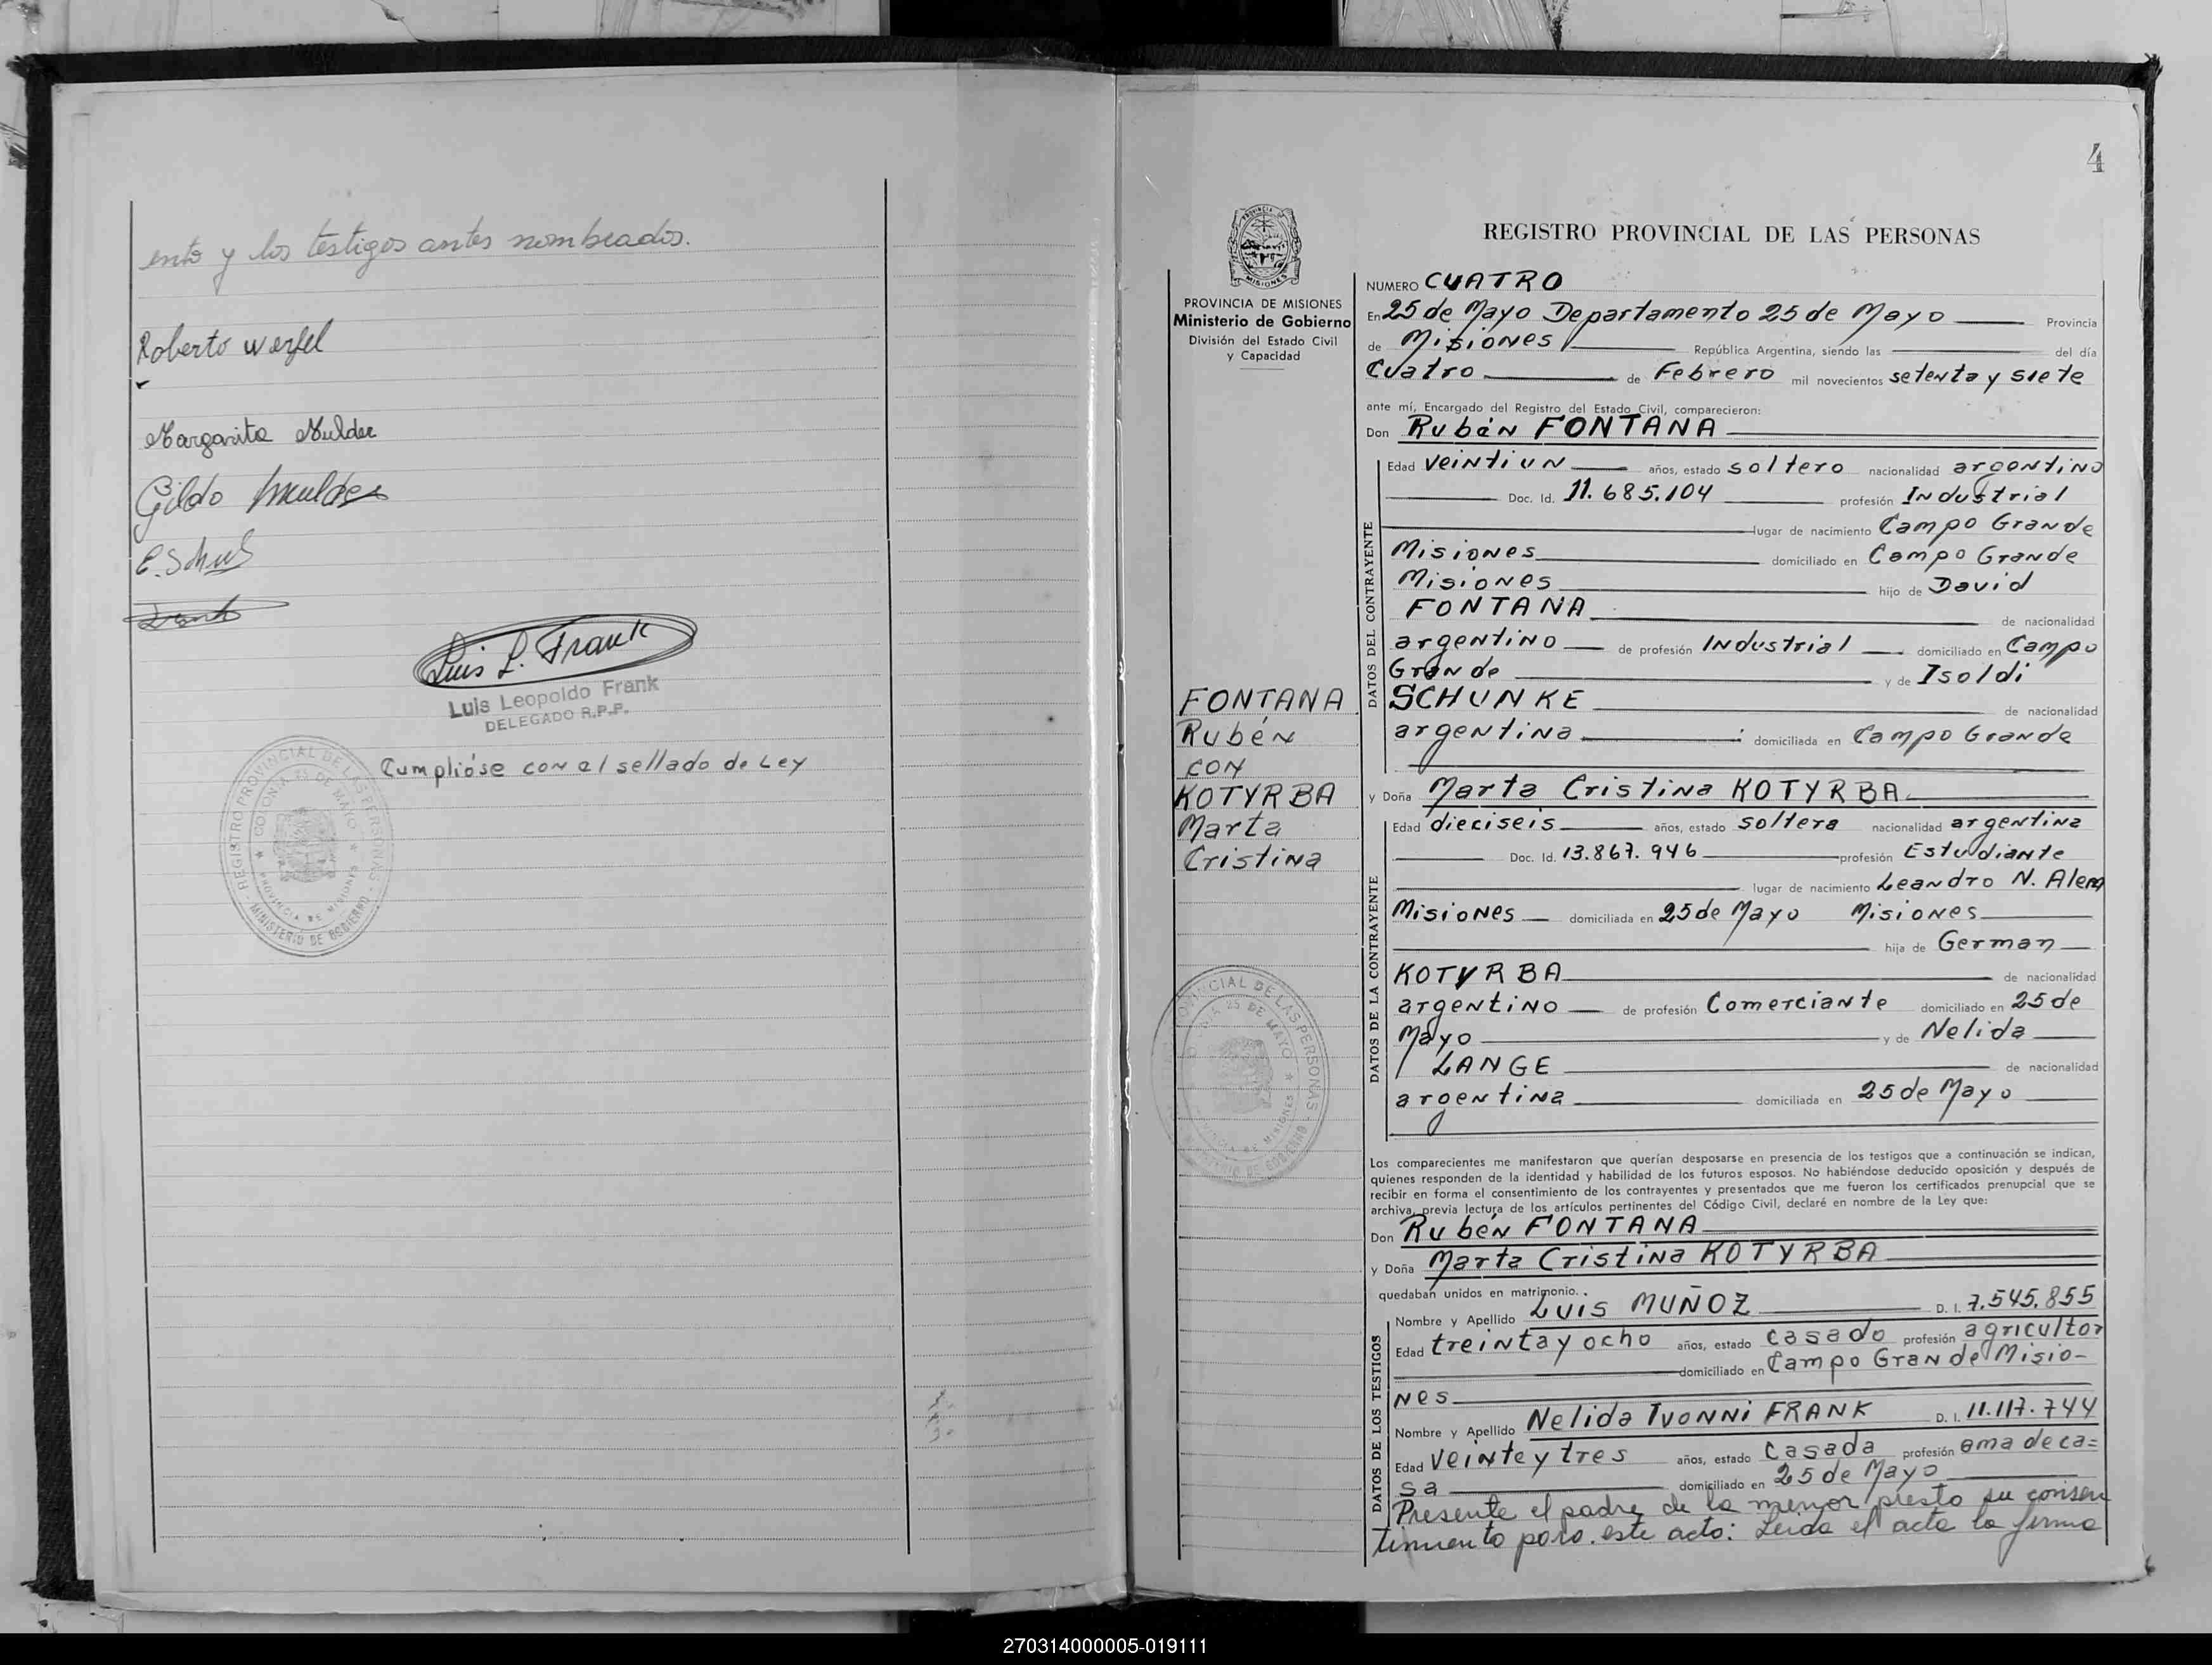 ento y los testigos antes nombrados.
Roberto Werfel
Margarita Mulder
Gildo Mulder
E. Schu
Luis L. Frank
Luis Leopoldo Frank
DELEGADO R.P.P.
Cumplióse con el sellado de Ley
REGISTRO PROVINCIAL DE LAS PERSONAS - MINISTERIO DE GOBIERNO
COLONIA 25 DE MAYO
PROVINCIA DE MISIONES
4
PROVINCIA
MISIONES
PROVINCIA DE MISIONES
Ministerio de Gobierno
División del Estado Civil
y Capacidad
FONTANA
Rubén
con
KOTYRBA
Marta
Cristina
REGISTRO PROVINCIAL DE LAS PERSONAS
NUMERO CUATRO
En 25 de Mayo Departamento 25 de Mayo Provincia
de Misiones República Argentina, siendo las del día
Cuatro de Febrero mil novecientos setenta y siete
ante mí, Encargado del Registro del Estado Civil, comparecieron:
Don Rubén FONTANA
DATOS DEL CONTRAYENTE
Edad veintiun años, estado soltero nacionalidad argentino
Doc. Id. 11.685.104 profesión Industrial
lugar de nacimiento Campo Grande
Misiones domiciliado en Campo Grande
Misiones hijo de David
FONTANA de nacionalidad
argentino de profesión Industrial domiciliado en Campo
Grande y de Isoldi
SCHUNKE de nacionalidad
argentina domiciliada en Campo Grande
y Doña Marta Cristina KOTYRBA
DATOS DE LA CONTRAYENTE
Edad dieciseis años, estado soltera nacionalidad argentina
Doc. Id. 13.867.946 profesión Estudiante
lugar de nacimiento Leandro N. Alem
Misiones domiciliada en 25 de Mayo Misiones
hija de German
KOTYRBA de nacionalidad
argentino de profesión Comerciante domiciliado en 25 de
Mayo y de Nelida
LANGE de nacionalidad
argentina domiciliada en 25 de Mayo
Los comparecientes me manifestaron que querían desposarse en presencia de los testigos que a continuación se indican,
quienes responden de la identidad y habilidad de los futuros esposos. No habiéndose deducido oposición y después de
recibir en forma el consentimiento de los contrayentes y presentados que me fueron los certificados prenupcial que se
archiva, previa lectura de los artículos pertinentes del Código Civil, declaré en nombre de la Ley que:
Don Rubén FONTANA
y Doña Marta Cristina KOTYRBA
quedaban unidos en matrimonio.
DATOS DE LOS TESTIGOS
Nombre y Apellido LUIS MUÑOZ D. I. 7.545.855
Edad treinta y ocho años, estado casado profesión agricultor
domiciliado en Campo Grande Misio-
nes
Nombre y Apellido Nelida Ivonni FRANK D. I. 11.117.744
Edad veinte y tres años, estado casada profesión ama de ca=
sa domiciliado en 25 de Mayo
Presente el padre de la menor presto su consen
timiento para este acto: Leida el acta la firma
270314000005-019111